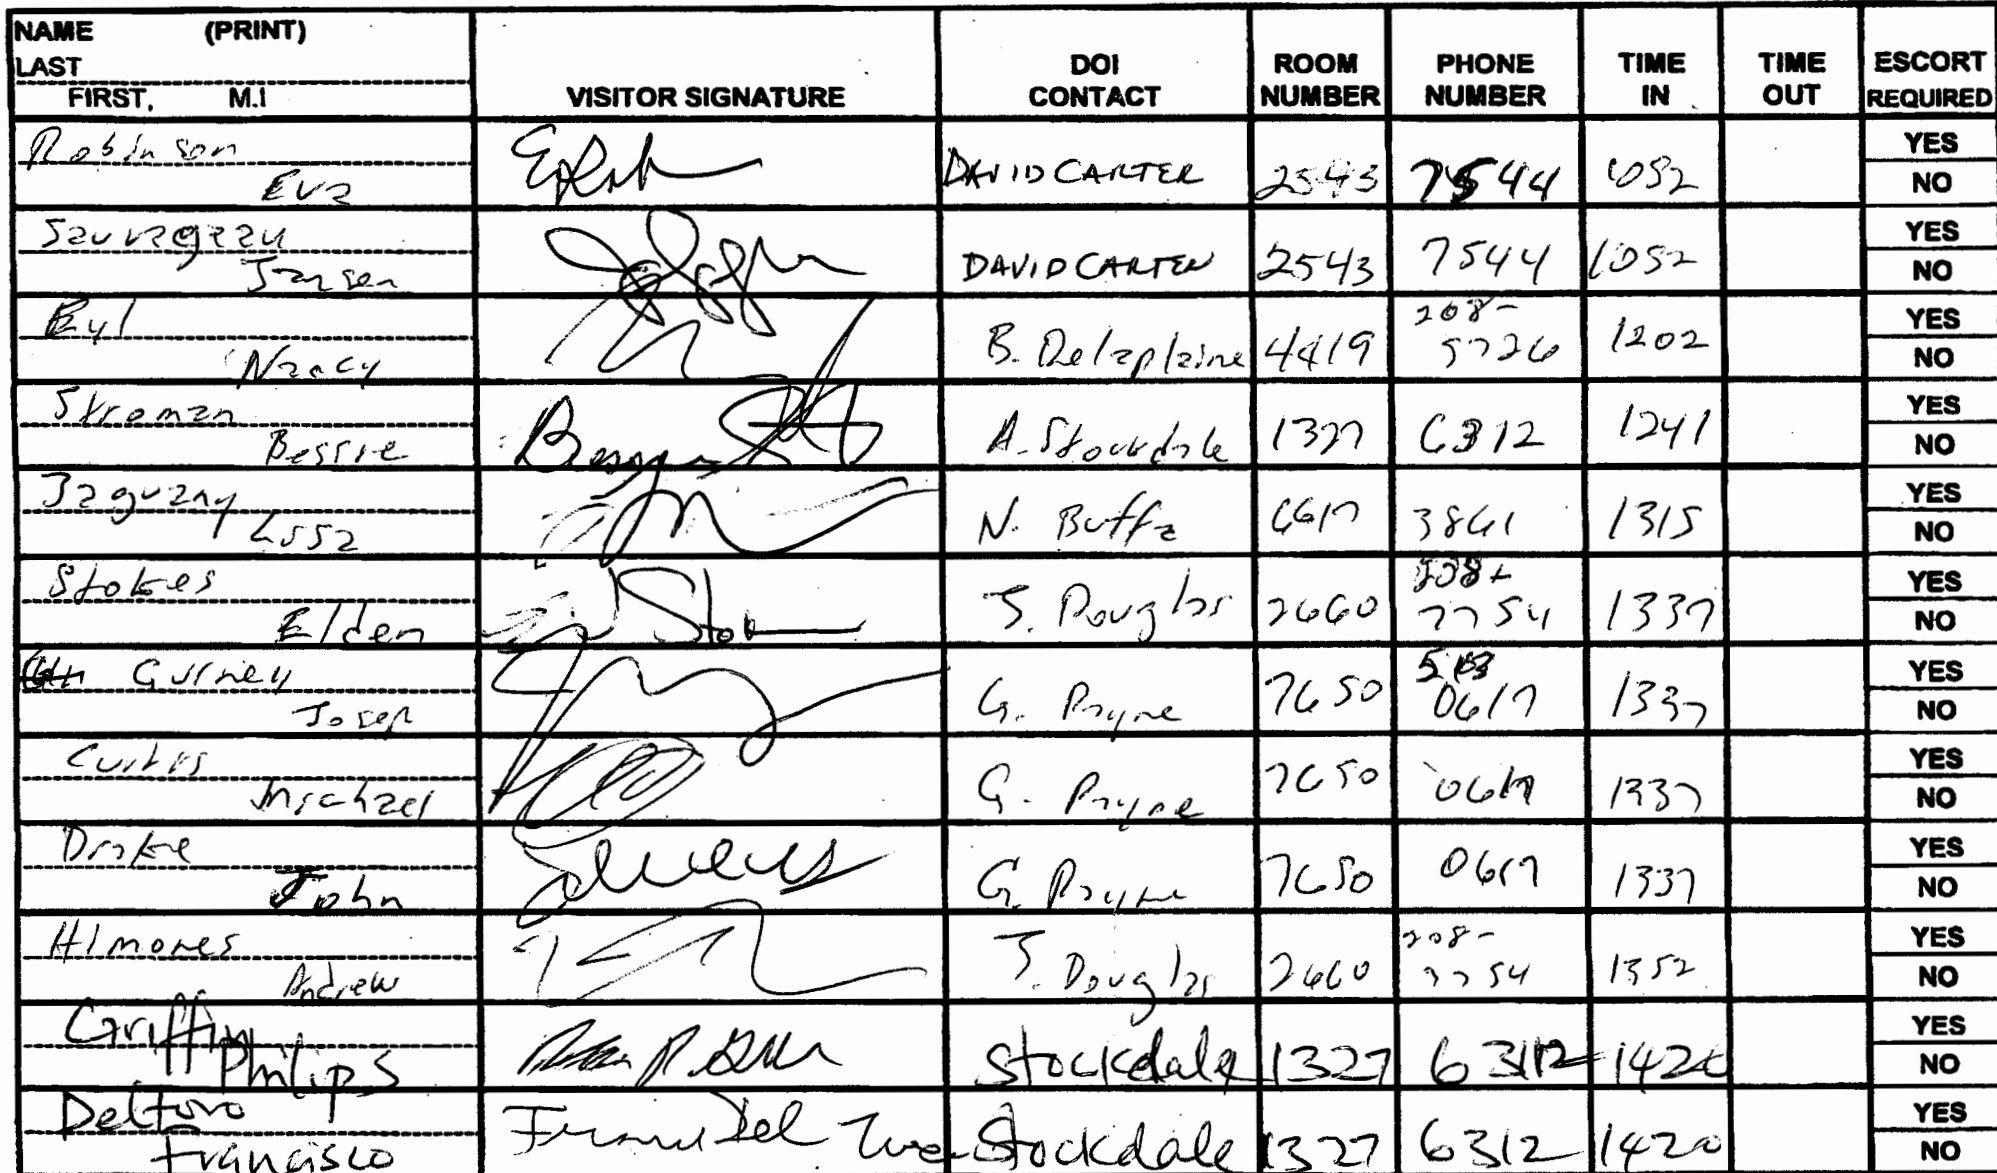 NAME (PRINT)
LAST
FIRST, M.I
VISITOR SIGNATURE
DOI CONTACT
ROOM NUMBER
PHONE NUMBER
TIME IN
TIME OUT
ESCORT REQUIRED
Robinson
Eva
DAVID CARTER 2543 7544 1052
YES
NO
Sauvageau
Jansen
DAVID CARTER 2543 7544 1052
YES
NO
Eyl
Nancy
B. Delaplaine 4419 208-
5726 1202
YES
NO
Stroman
Bessie
A. Stockdale 1327 6312 1241
YES
NO
Jaguany
Lissa
N. Buffa 6617 3861 1315
YES
NO
Stokes
Elden
J. Douglas 2660 208-
7754 1337
YES
NO
Gurney
Josep
G. Payne 7650 513
0617 1337
YES
NO
Curtis
Michael
G. Payne 7650 0617 1337
YES
NO
Drake
John
G. Payne 7650 0617 1337
YES
NO
Almores
Andrew
J. Douglas 2660 208-
7754 1352
YES
NO
Griffin
Philips
Stockdale 1327 6312 1420
YES
NO
Deltoro
Francisco
Stockdale 1327 6312 1420
YES
NO